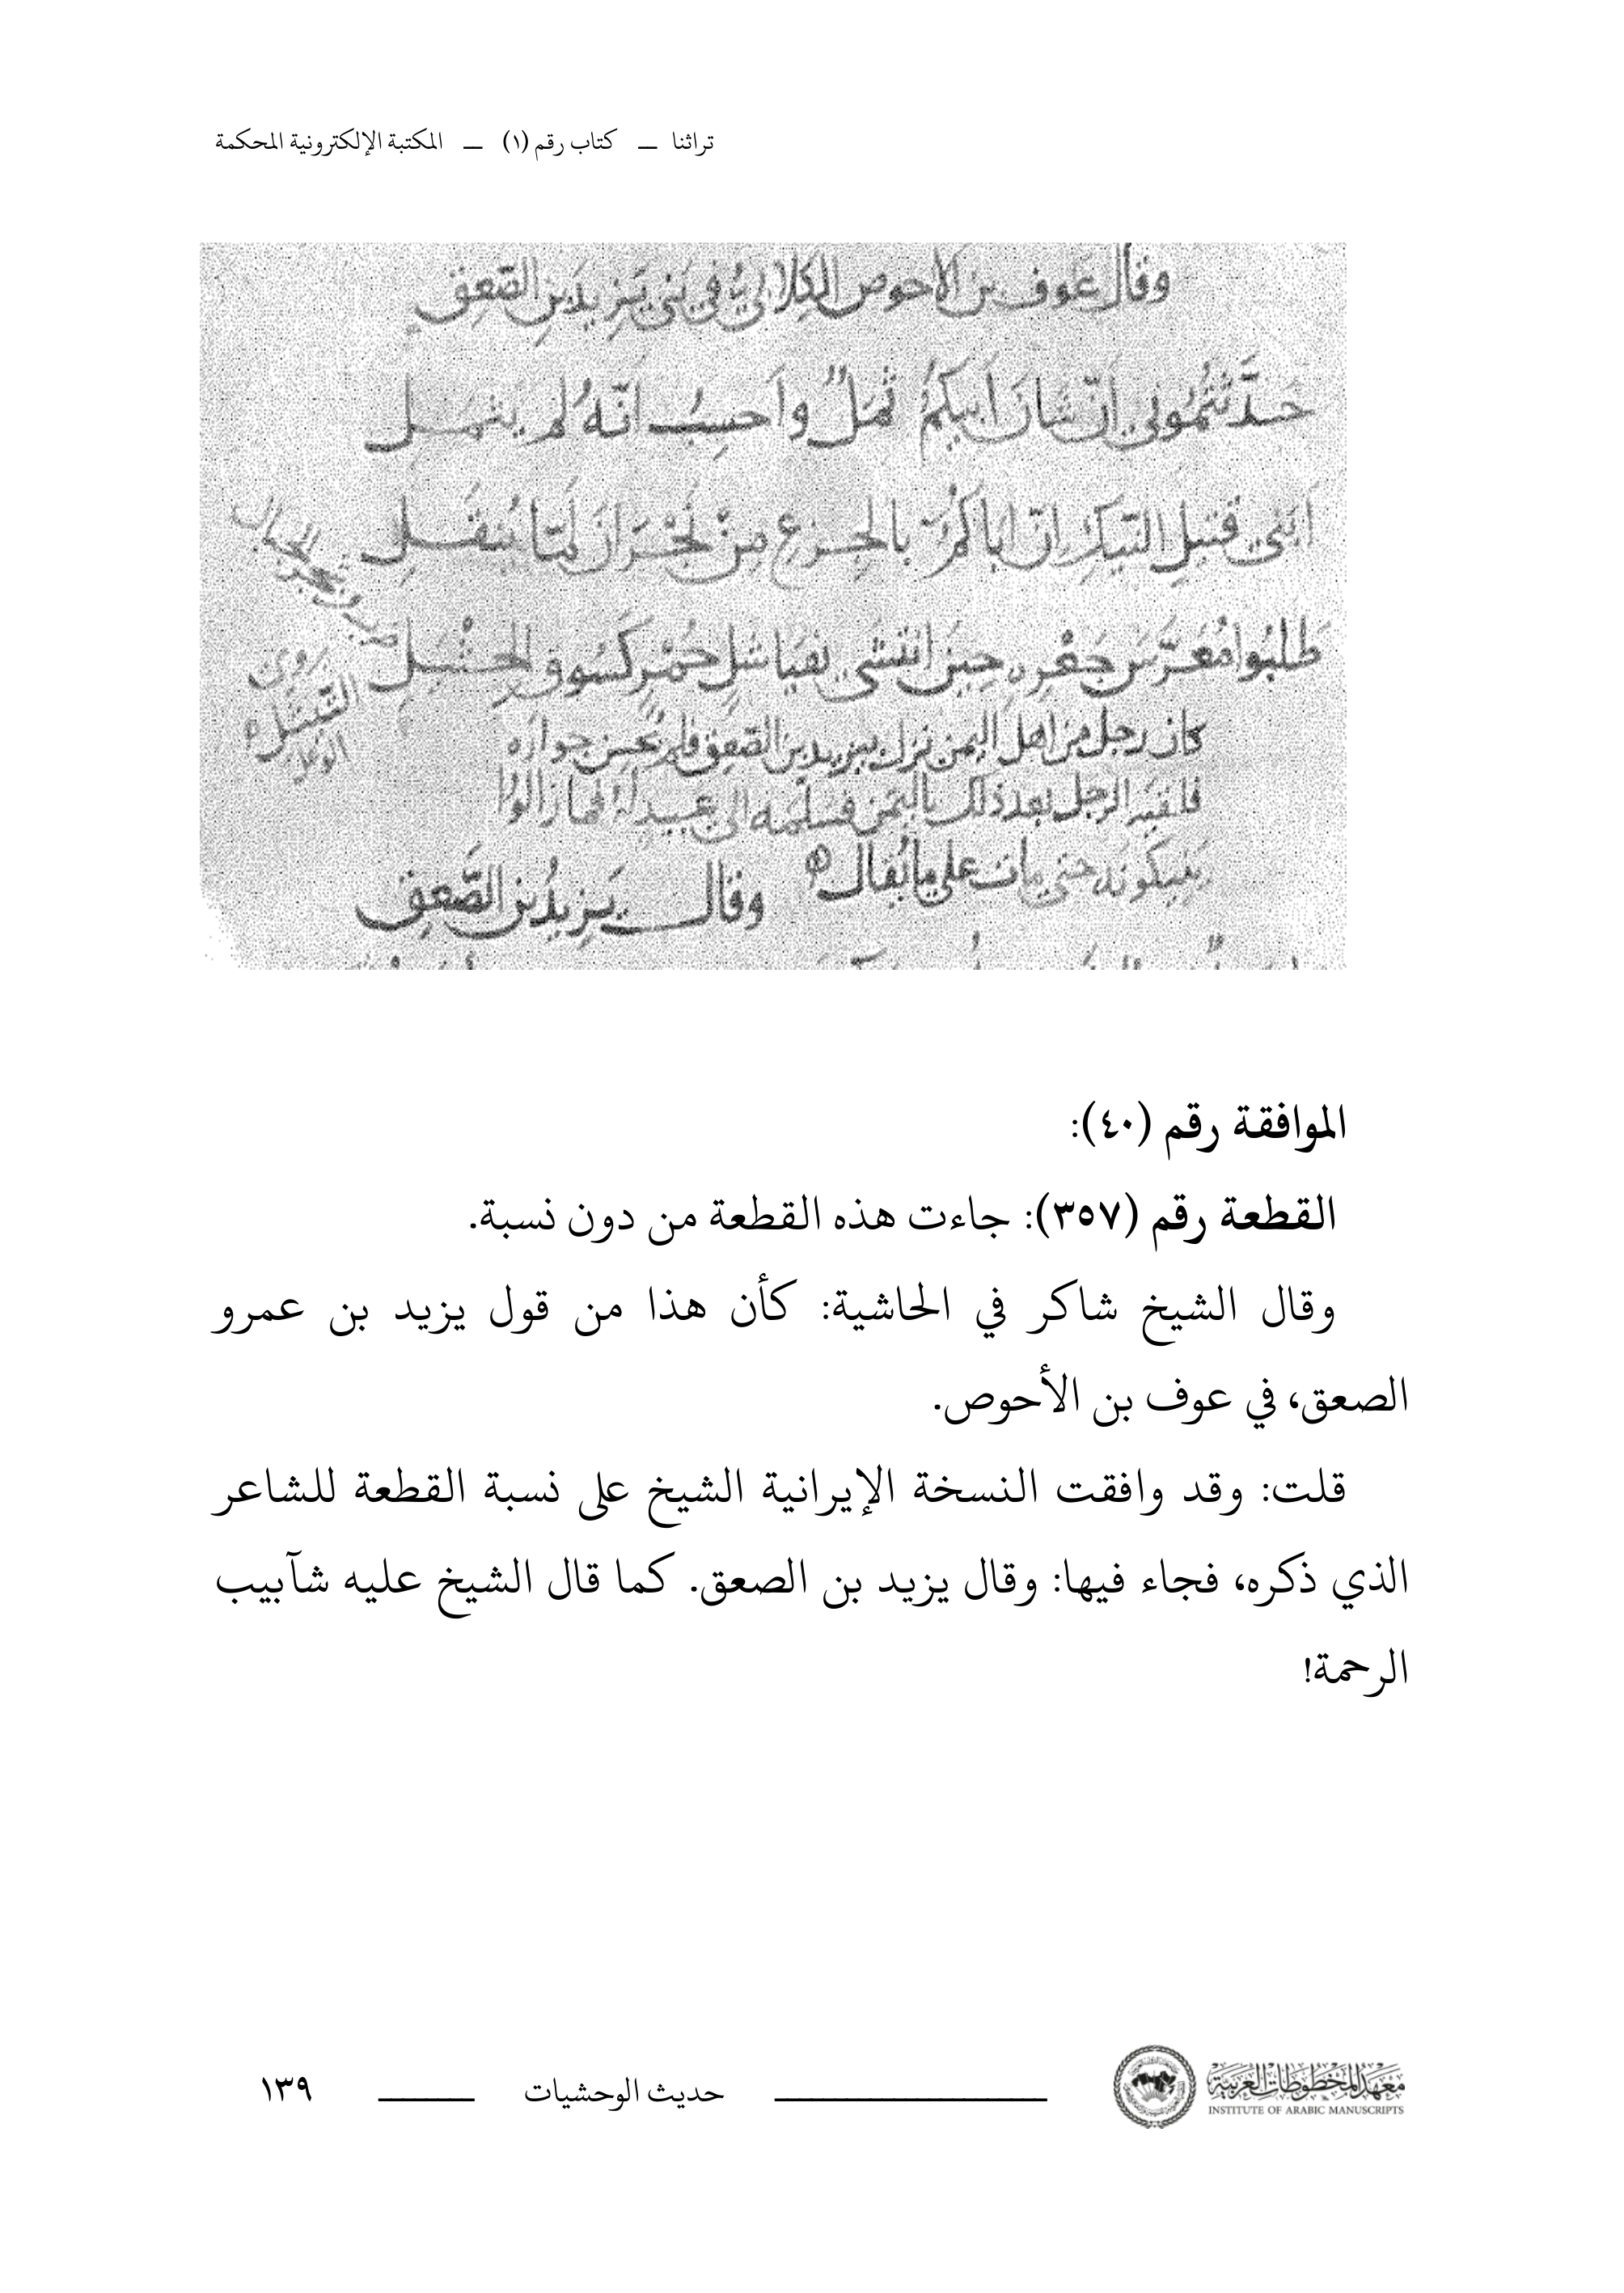 تراثنا — كتاب رقم (١) — المكتبة الإلكترونية المحكمة
وقال عوف بن الاحوص الكلابيّ في بني يزيد بن الصعق
حدّثتموني انّ شان ابيكمُ ثملٌ واحسِبُ انّهُ لم يثمل
ابني قتيل التيك انّ اباكمُ بالجزع من نجران لمّا ينقل
طلبوا معرّس جعفر حين انتشى
كان رجل من اهل اليمن نزل بيزيد بن الصعق فلم يحسن جواره
فلقيه الرجل بعد ذلك باليمن فسلمه الى عبيد له فما زالوا
حتى مات على ما يقال
وقال يزيد بن الصّعق
يروى
الموافقة رقم (٤٠):
القطعة رقم (٣٥٧): جاءت هذه القطعة من دون نسبة.
وقال الشيخ شاكر في الحاشية: كأن هذا من قول يزيد بن عمرو
الصعق، في عوف بن الأحوص.
قلت: وقد وافقت النسخة الإيرانية الشيخ على نسبة القطعة للشاعر
الذي ذكره، فجاء فيها: وقال يزيد بن الصعق. كما قال الشيخ عليه شآبيب
الرحمة!
معهد المخطوطات العربية
INSTITUTE OF ARABIC MANUSCRIPTS
حديث الوحشيات
١٣٩